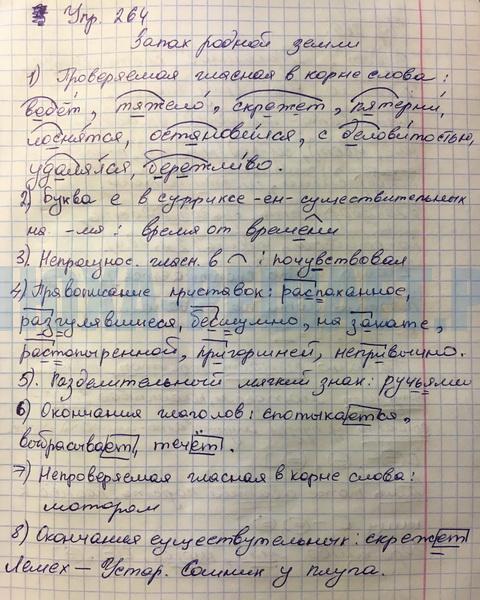 Упр. 264
Запах родной земли
1) Проверяемая гласная в корне слова:
ведёт, тяжело, скрежет, пятерни,
лоснятся, остановился, с беловитостью,
удалялся, бережливо.
2) Буква е в суффиксе -ен- существительных
на -мя: время от времени
3) Непроизнос. гласн. в ⌒: почувствовал
4) Правописание приставок: распаханное,
разгулявшиеся, бесшумно, на закате,
растопыренной, пригоршней, непривычно.
5). Разделительный мягкий знак: ручьями
6) Окончания глаголов: спотыкается,
выбрасывает, течёт.
7) Непроверяемая гласная в корне слова:
мотором
8) Окончания существительных: скрежет
Лемех – Устар. Сошник у плуга.